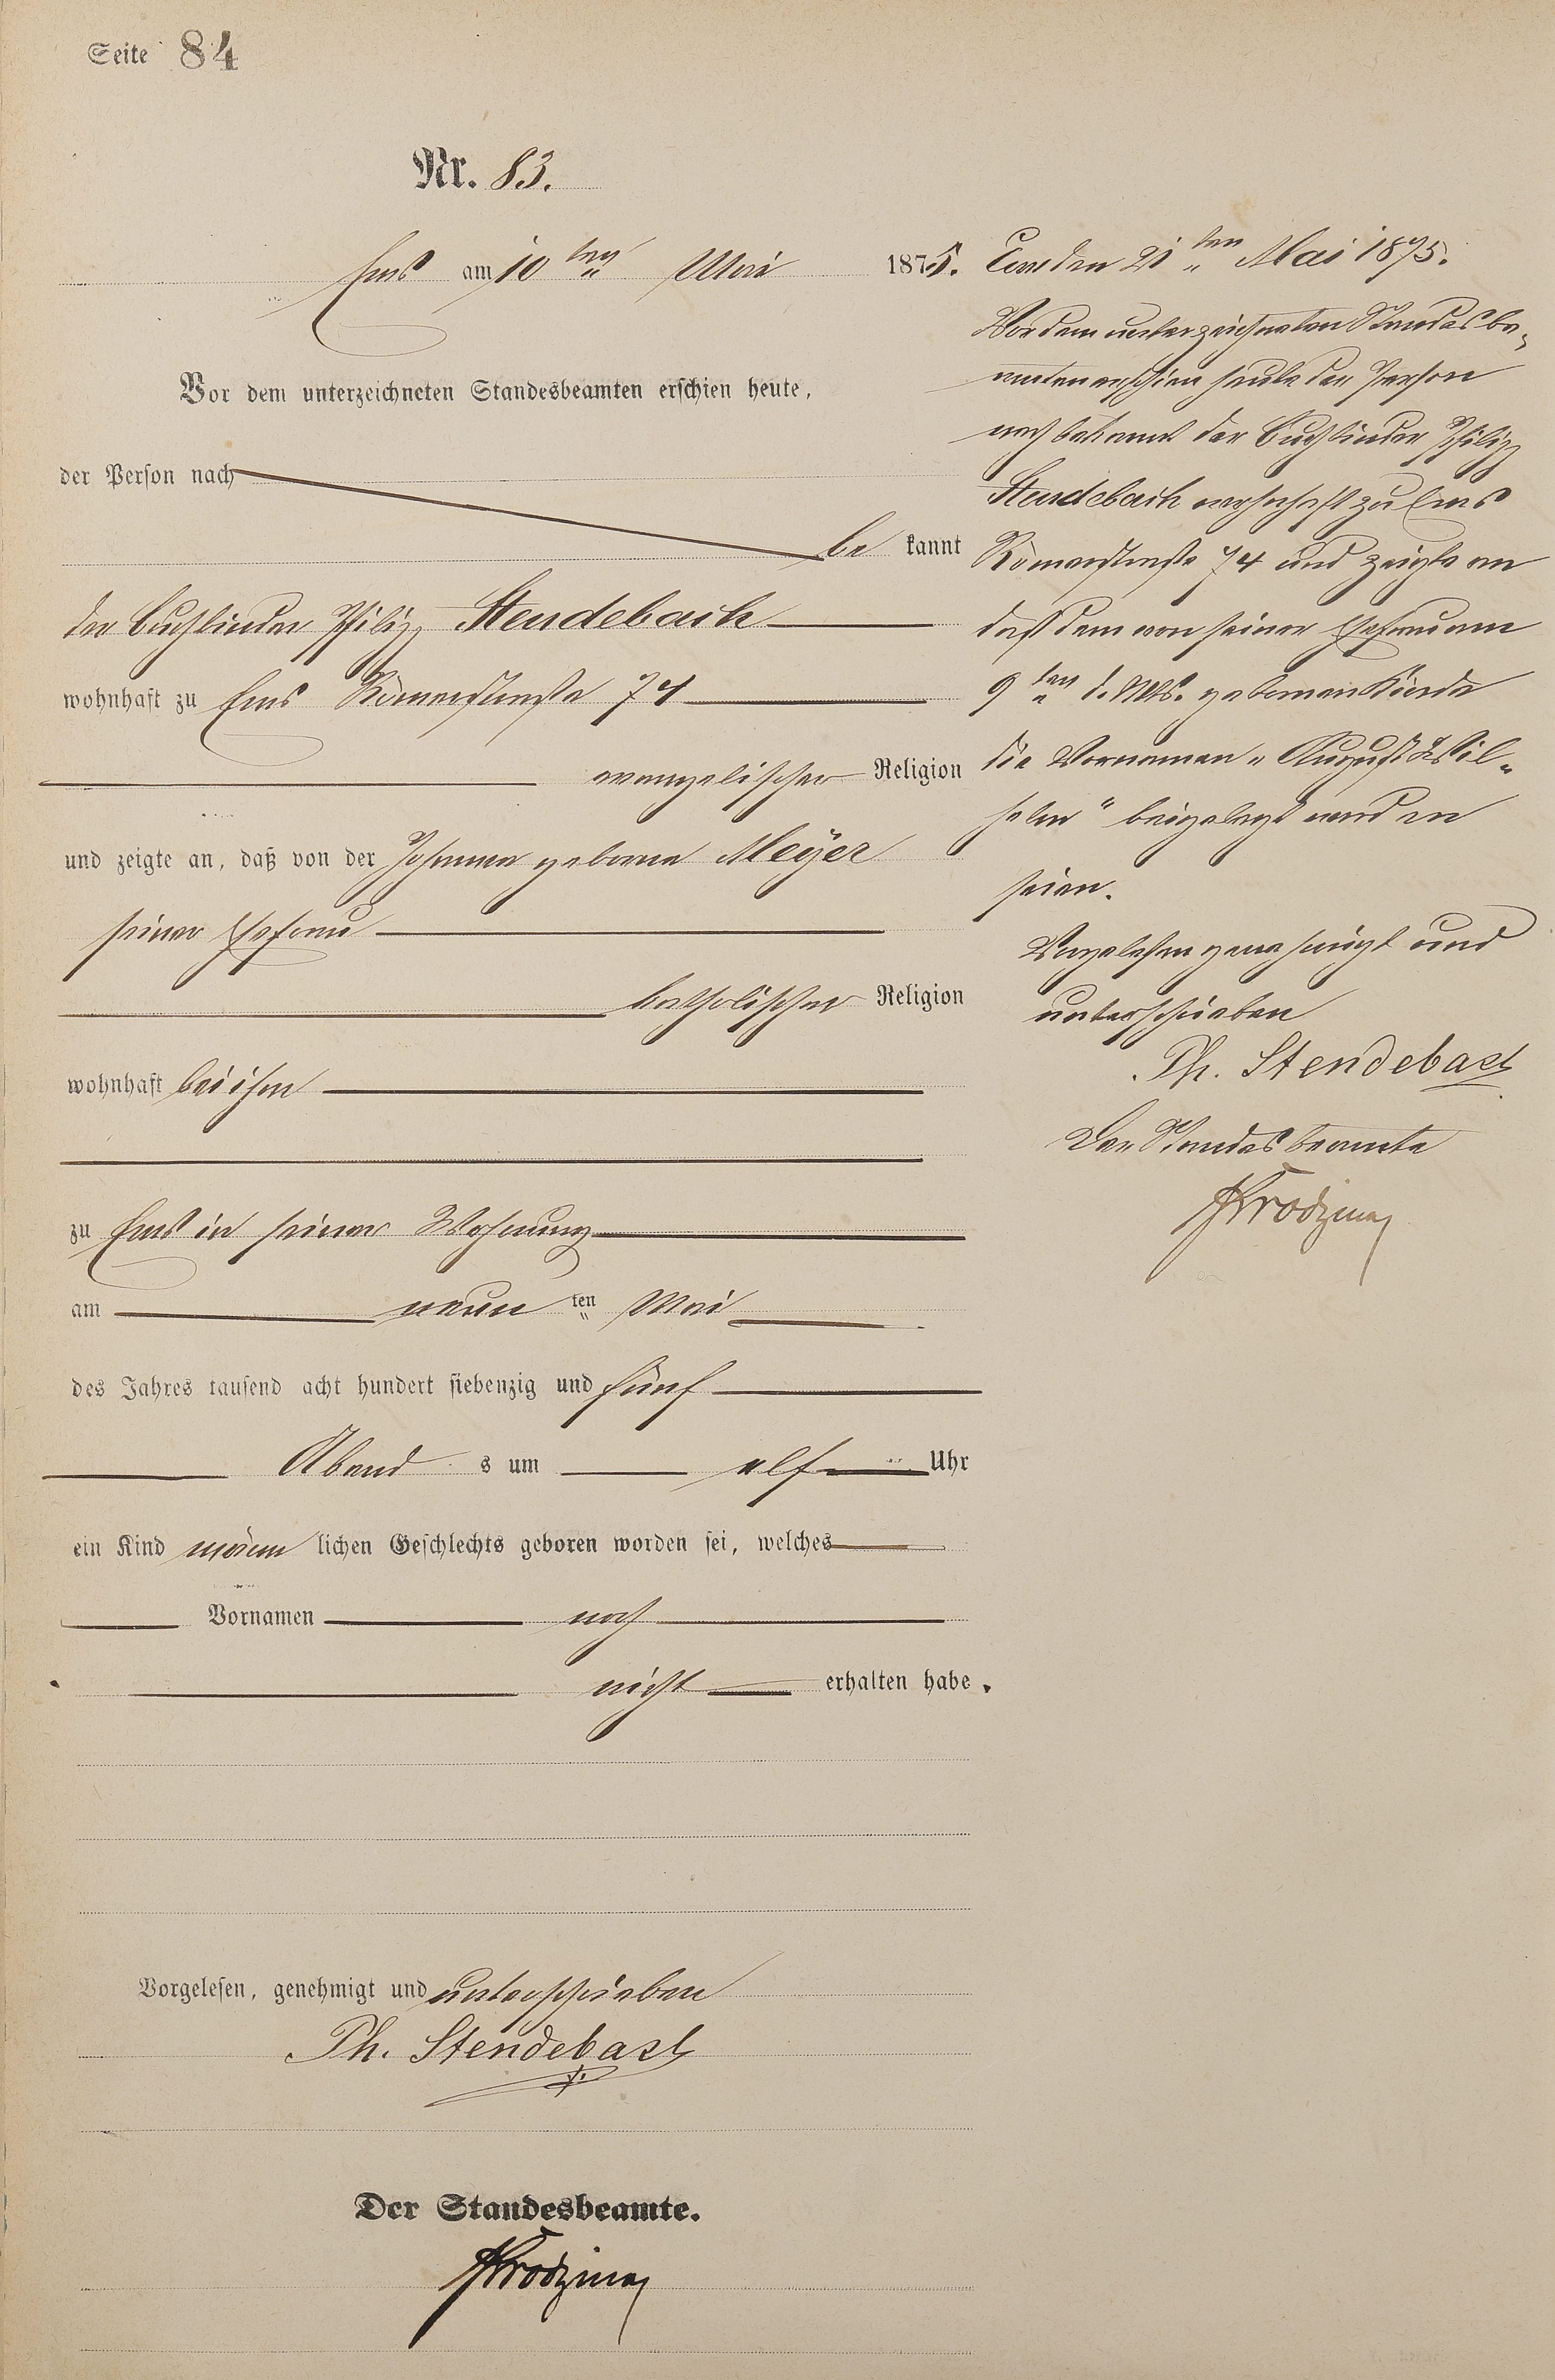 Seite 84
Nr. 83.
Ems am 10ten Mai 1875.
Vor dem unterzeichneten Standesbeamten erschien heute,
der Person nach
bekannt
der Buchbinder Philipp Stendebach
wohnhaft zu Ems Römerstraße 74
evangelischer Religion
und zeigte an, daß von der Johanna geborne Meÿer
seiner Ehefrau
katholischer Religion
wohnhaft bei ihm
zu Ems in seiner Wohnung
am neunten Mai
des Jahres tausend acht hundert siebenzig und fünf
Abends um elf Uhr
ein Kind männlichen Geschlechts geboren worden sei, welches
Vornamen noch
nicht erhalten habe.
Vorgelesen, genehmigt und unterschrieben
Ph. Stendebach
Der Standesbeamte.
Ems den 21ten Mai 1875.
Vor dem unterzeichneten Standesbe-
amten erschien heute der Person
nach bekannt der Buchbinder Philipp
Stendebach wohnhaft zu Ems
Römerstraße 74 und zeigte an
daß dem von seiner Ehefrau am
9ten d. Mts. gebornen Kinde
die Vornamen „August Wil-
helm" beigelegt worden
seien.
Vorgelesen genehmigt und
unterschrieben
Ph. Stendebach
Der Standesbeamte